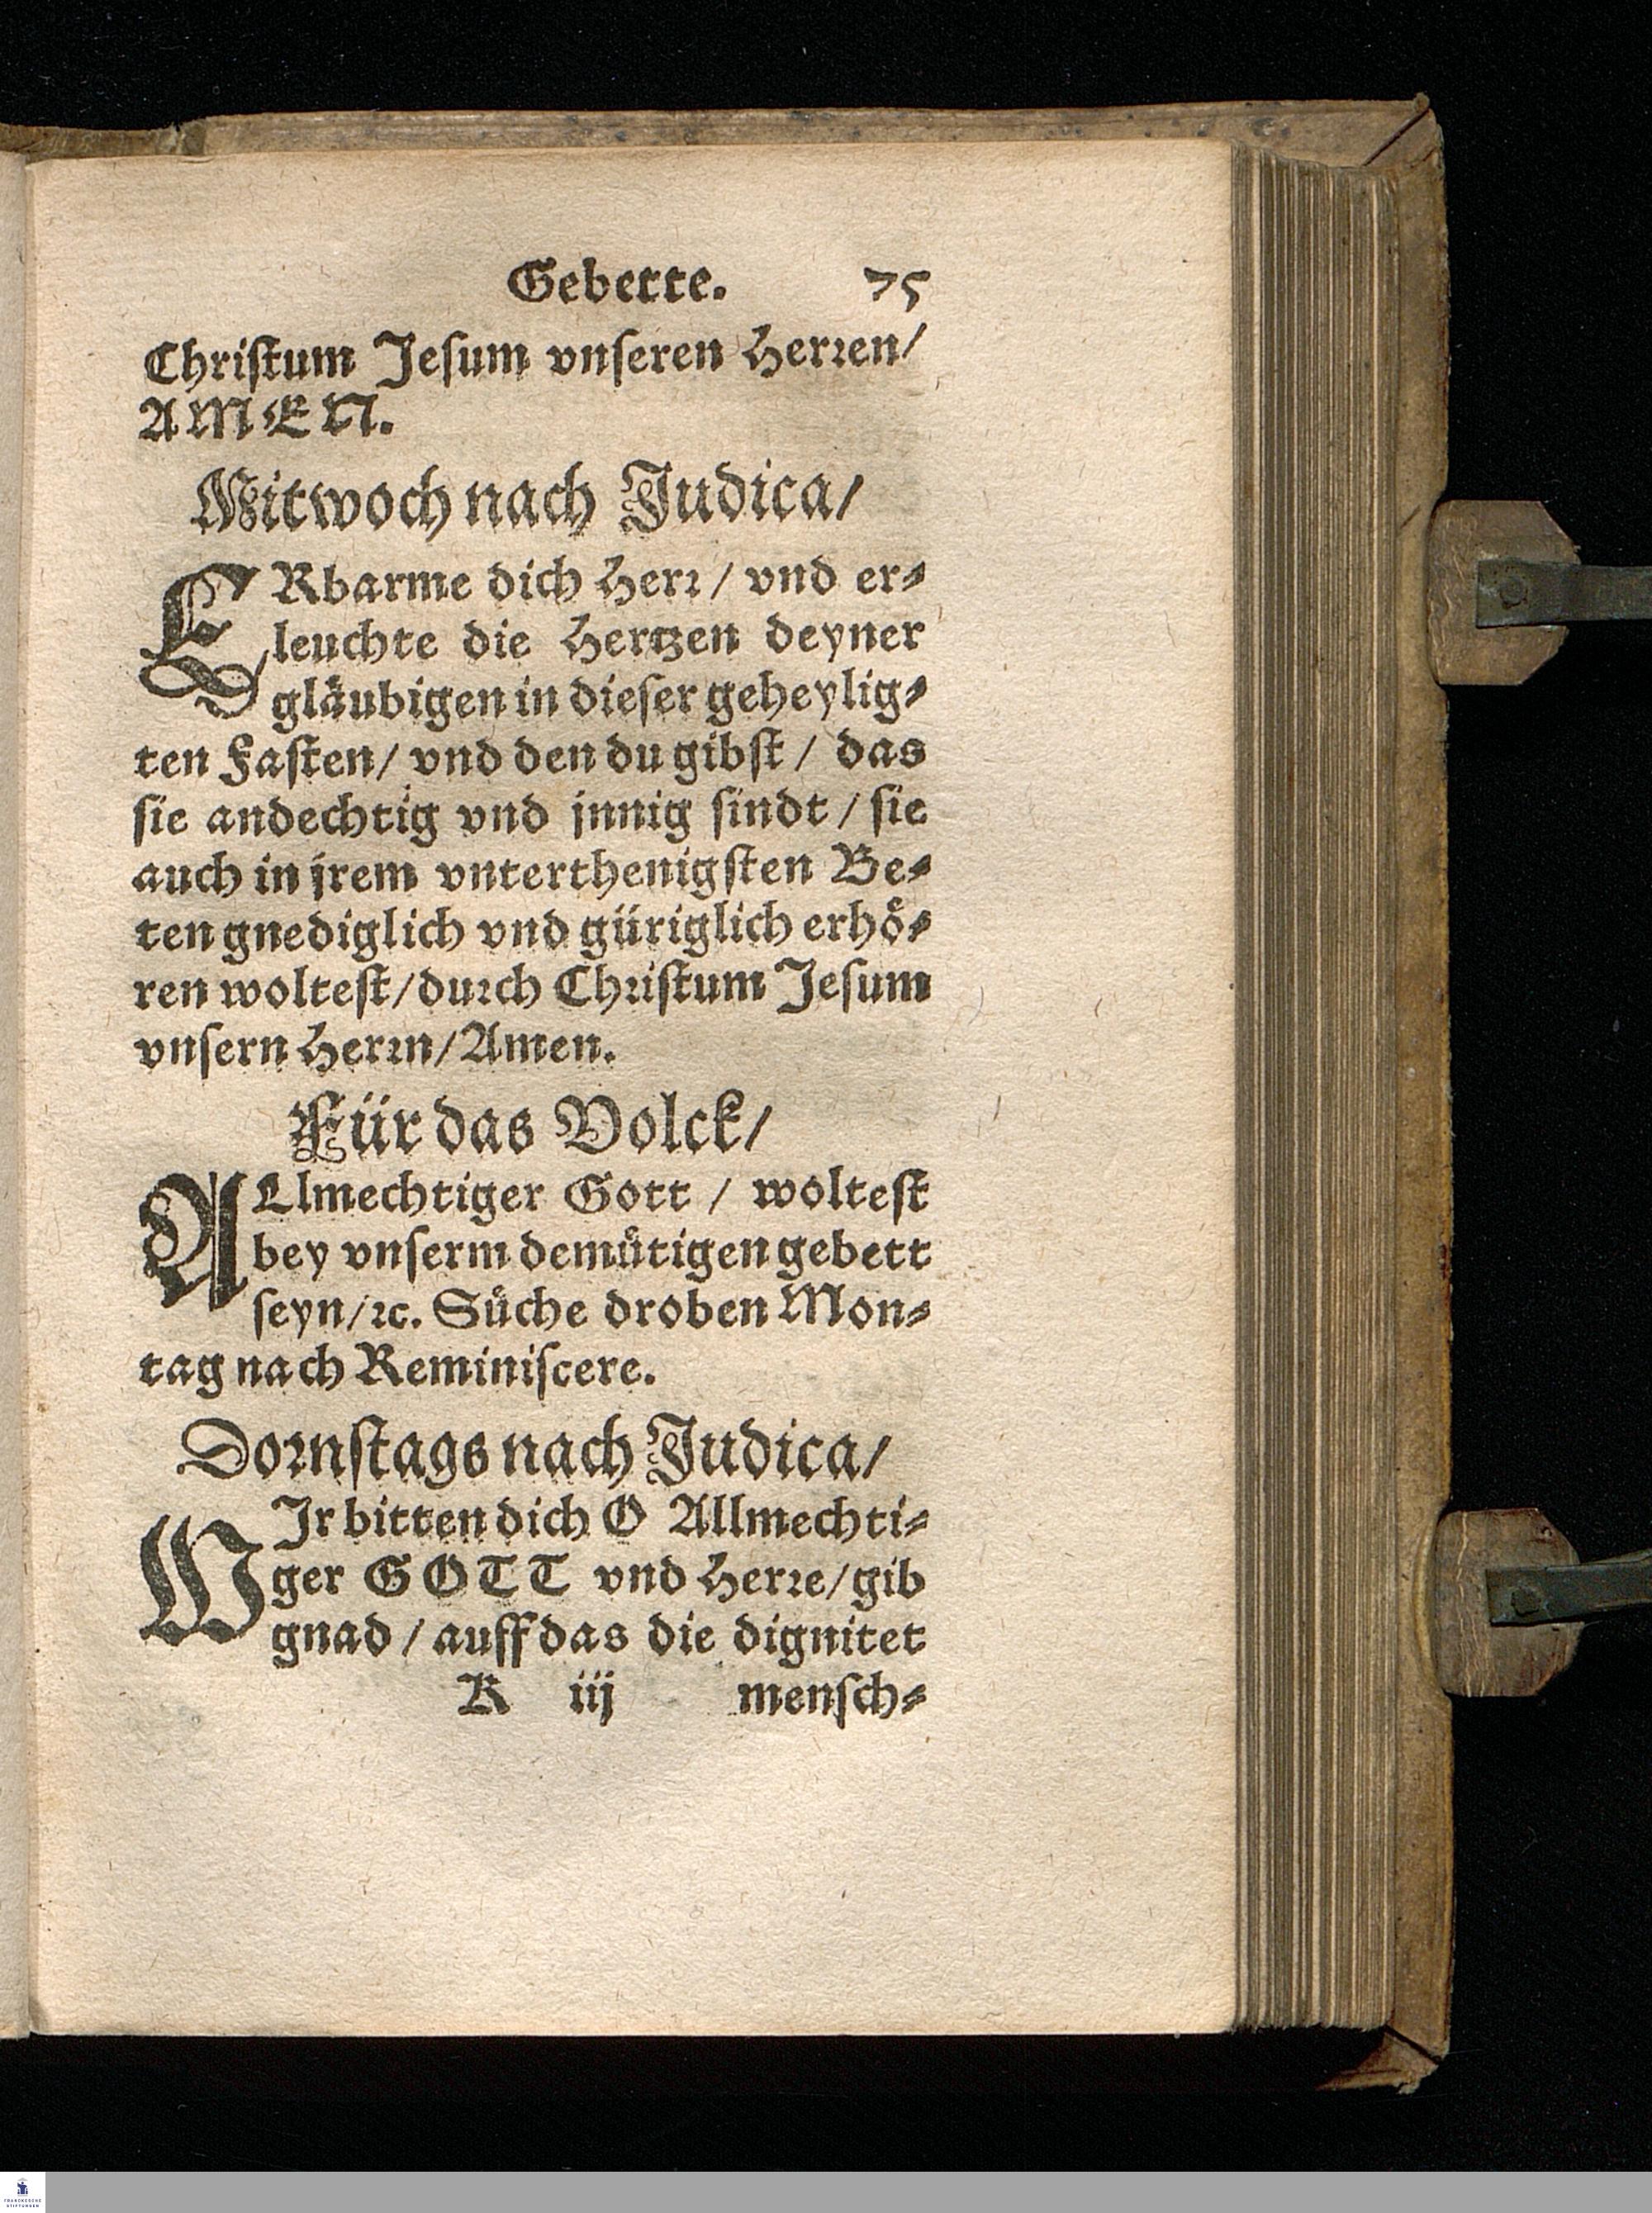 Gebette. 75
Christum Jesum vnseren Herren/
AMEN.
Mitwoch nach Judica/
ERbarme dich Herr / vnd er⸗
leuchte die Hertzen deyner
gläubigen in dieser geheylig⸗
ten Fasten/ vnd den du gibst / das
sie andechtig vnd jnnig sindt / sie
auch in jrem vnterthenigsten Be⸗
ten gnediglich vnd güriglich erhö⸗
ren woltest/durch Christum Jesum
vnsern Herrn/Amen.
Für das Volck/
ALlmechtiger Gott / woltest
bey vnserm demütigen gebett
seyn/ꝛc. Süche droben Mon⸗
tag nach Reminiscere.
Dornstags nach Judica/
WIr bitten dich O Allmechti⸗
ger GOTT vnd Herre/gib
gnad / auff das die dignitet
K iij mensch⸗
FRANCKESCHE
STIFTUNGEN